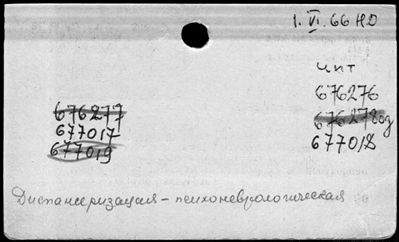 1.VI.66 НО
чит
676276
676277
676278од
677017
677018
677019
Диспансеризация – психоневрологическая